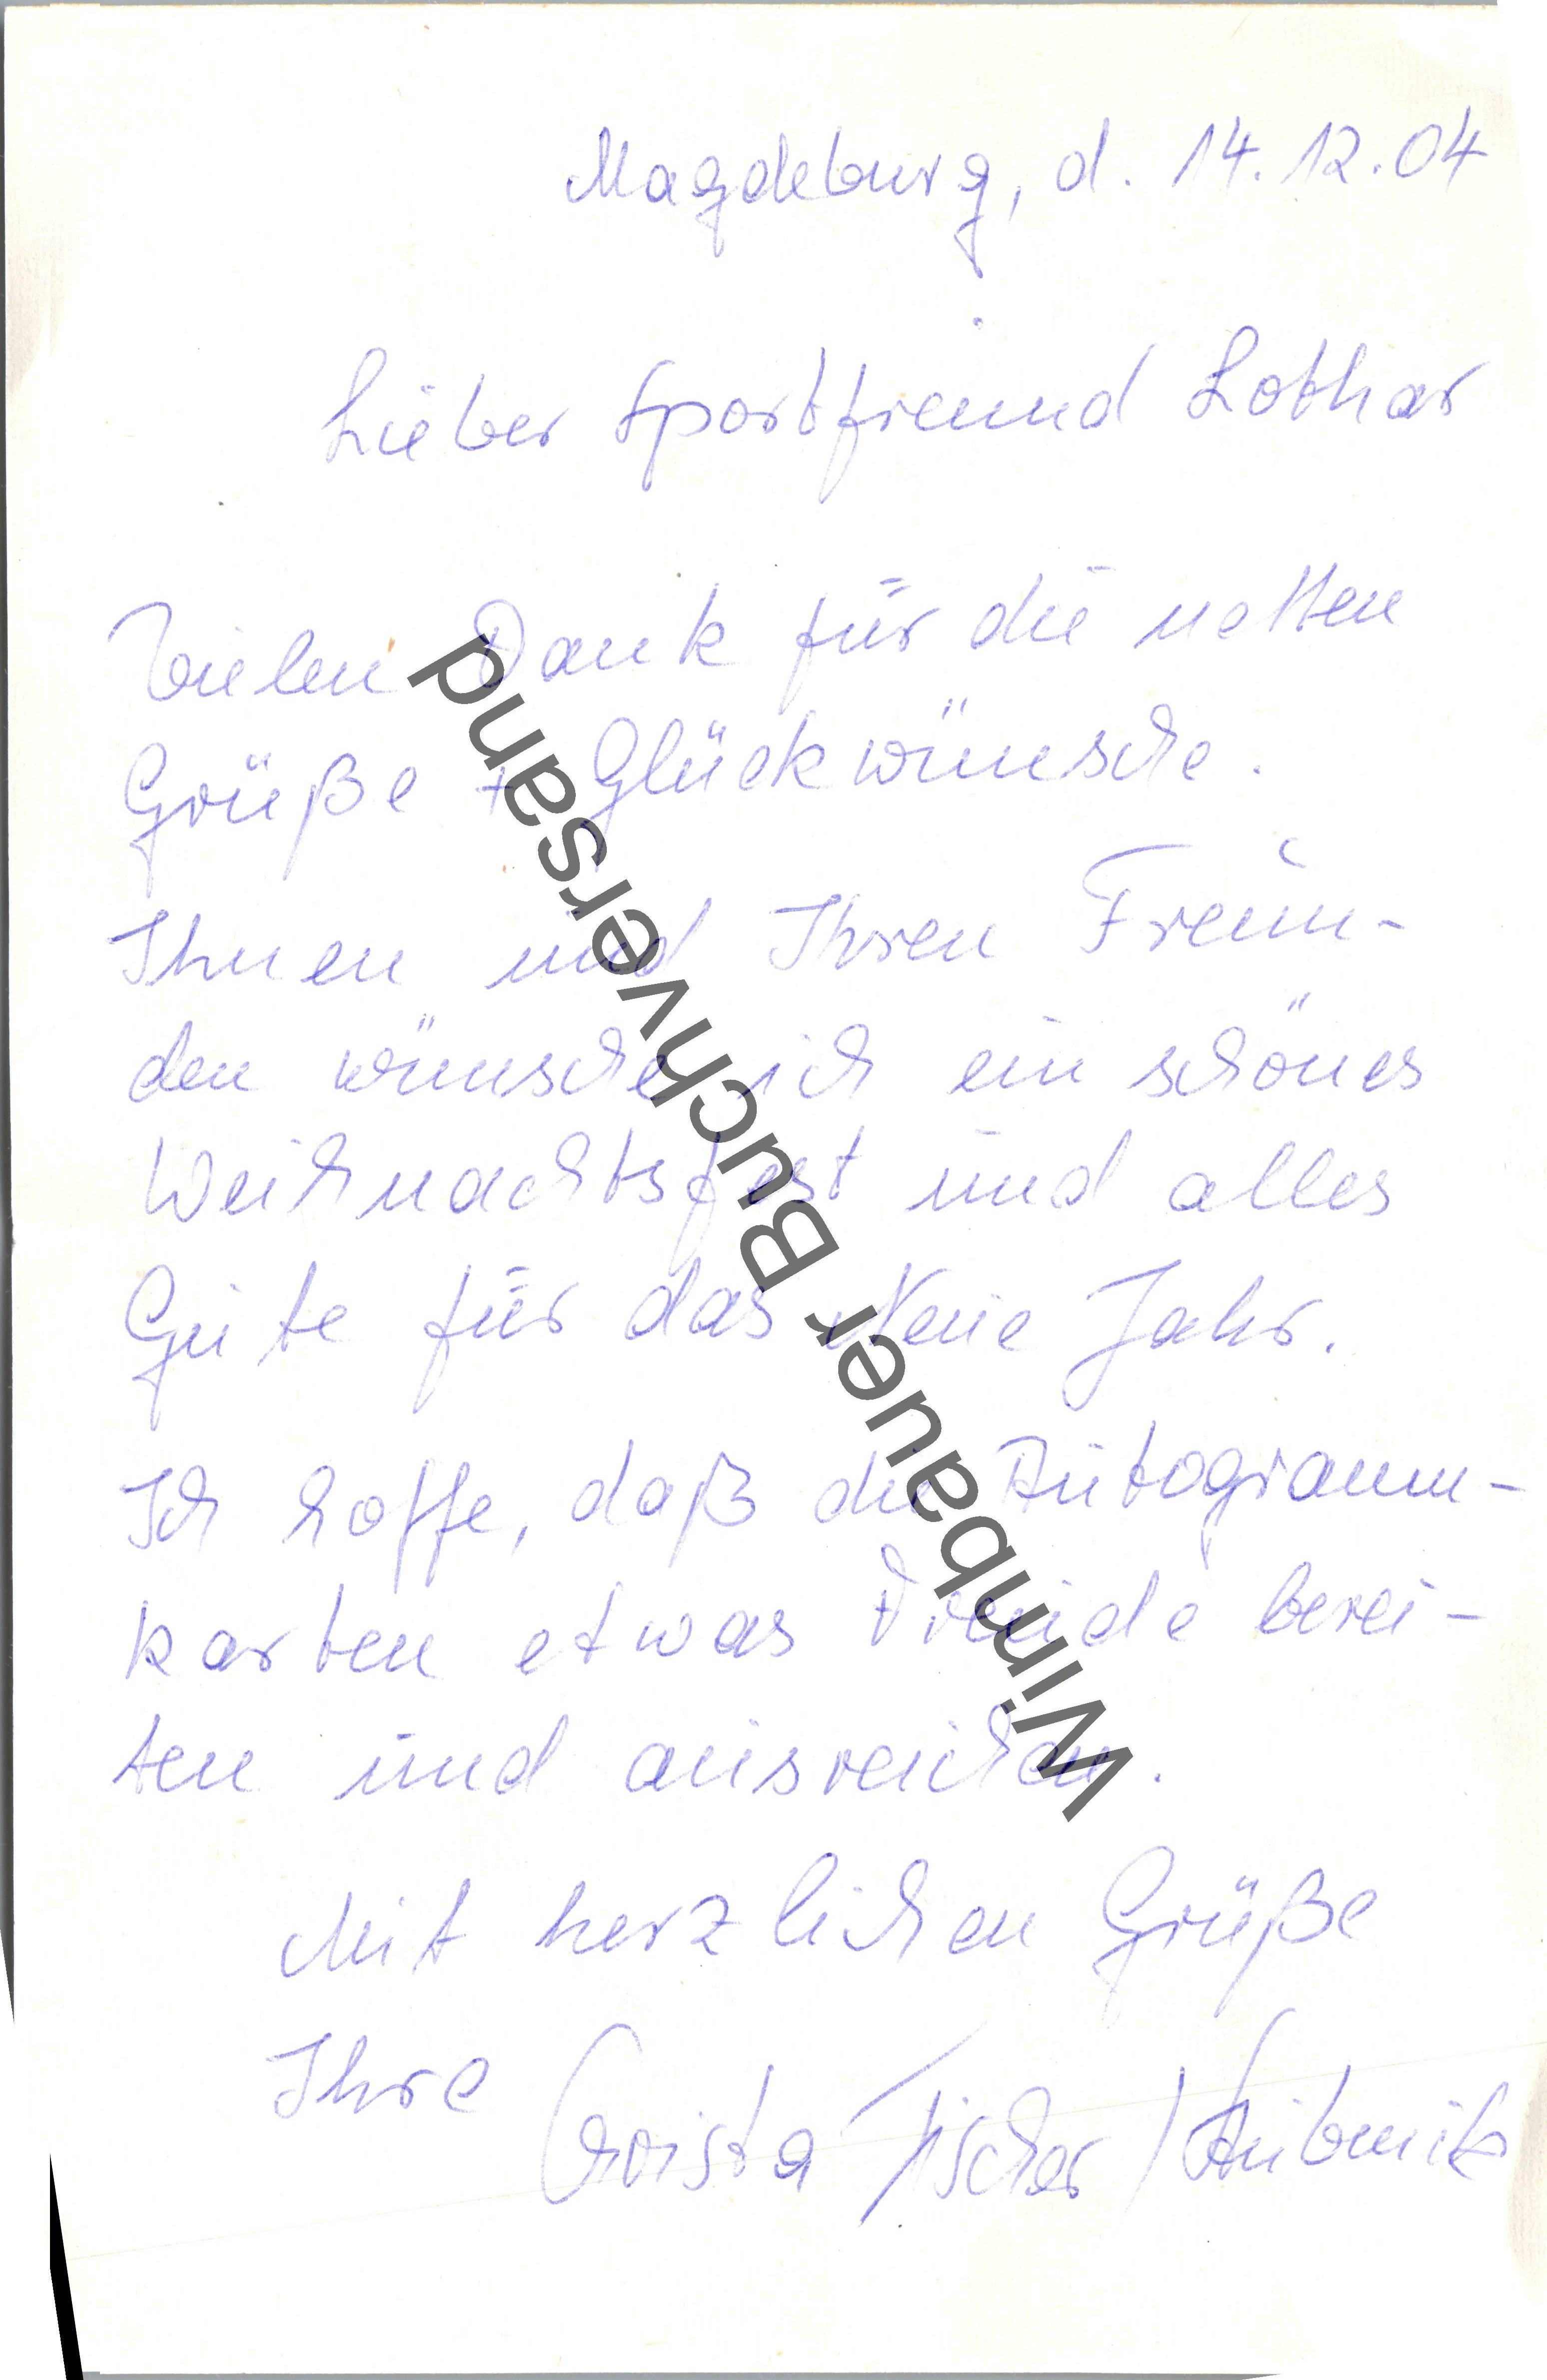 Magdeburg, d. 14.12.04
Lieber Sportfreund Lothar
Vielen Dank für die netten
Grüße + Glückwünsche.
Ihnen und Ihren Freun-
den wünsche ich ein schönes
Weihnachtsfest und alles
Gute für das Neue Jahr.
Ich hoffe, daß die Autogramm-
karten etwas Freude berei-
ten und ausreichen.
Mit herzlichen Grüße
Ihre Christa Fischer /
Wimbauer Buchversand